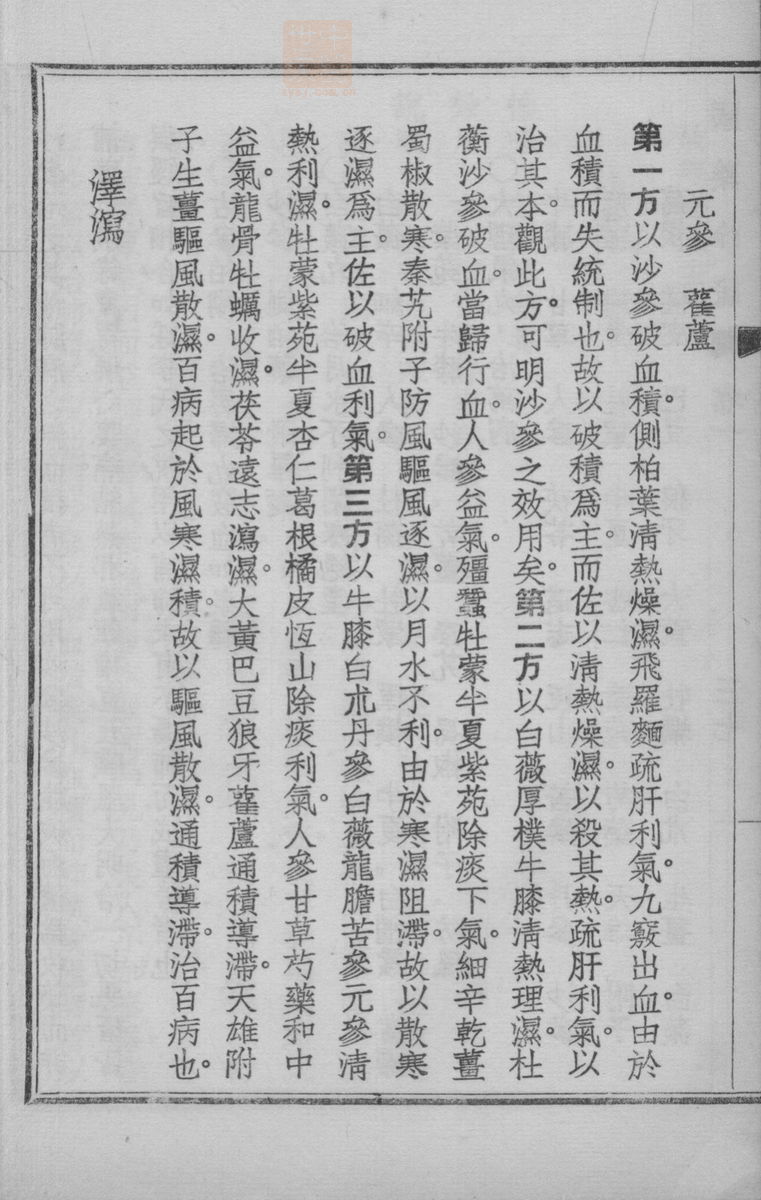 元參　雚蘆
第一方以沙參破血積。側柏葉淸熱燥濕。飛羅麵疏肝利氣。九竅出血。由於
血積而失統制也。故以破積爲主。而佐以淸熱燥濕。以殺其熱。疏肝利氣。以
治其本。觀此方。可明沙參之效用矣。第二方以白薇厚樸牛膝淸熱理濕。杜
蘅沙參破血。當歸行血。人參益氣。殭蠶牡蒙半夏紫苑除痰下氣。細辛乾薑
蜀椒散寒。秦艽附子防風驅風逐濕。以月水不利。由於寒濕阻滯。故以散寒
逐濕爲主。佐以破血利氣。第三方以牛膝白朮丹參白薇龍膽苦參元參淸
熱利濕。牡蒙紫苑半夏杏仁葛根橘皮恆山除痰利氣。人參甘草芍藥和中
益氣。龍骨牡蠣收濕。茯苓遠志瀉濕。大黃巴豆狼牙雚蘆通積導滯。天雄附
子生薑驅風散濕。百病起於風寒濕積。故以驅風散濕。通積導滯。治百病也。
澤瀉